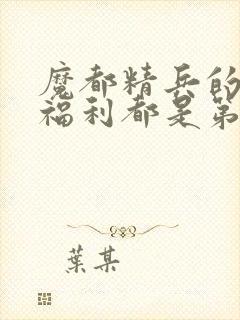 魔都精兵的
福利都是第
葉某